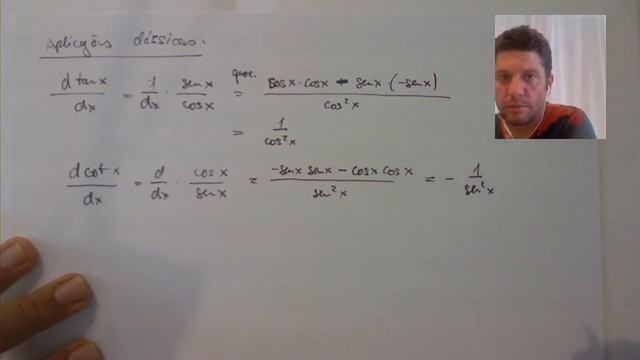 Aplicações clássicas.
d tan x / dx = 1/dx · sen x / cos x = quoc. cos x · cos x - sen x · (-sen x) / cos² x
= 1 / cos² x
d cot x / dx = d/dx · cos x / sen x = -sen x sen x - cos x cos x / sen² x = - 1 / sen² x